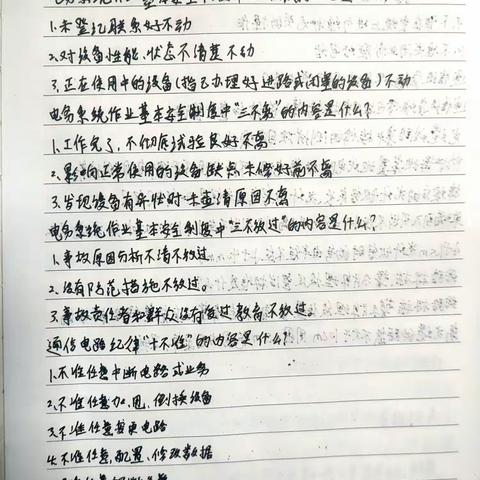 1.未登记联系好不动
2.对设备性能、状态不清楚不动
3.正在使用中的设备(指已办理好进路或闭塞的设备)不动
电务系统作业基本安全制度中"三不离"的内容是什么?
1.工作完了,不彻底试验良好不离
2.影响正常使用的设备缺点未修好前不离
3.发现设备有异状时未查清原因不离
电务系统作业基本安全制度中"三不放过"的内容是什么?
1.事故原因分析不清不放过
2.没有防范措施不放过。
3.事故责任者和群众没有受过教育不放过。
通信电路纪律"十不准"的内容是什么?
1.不准任意中断电路或业务
2.不准任意加、甩、倒换设备
3.不准任意变更电路
4.不准任意配置、修改数据